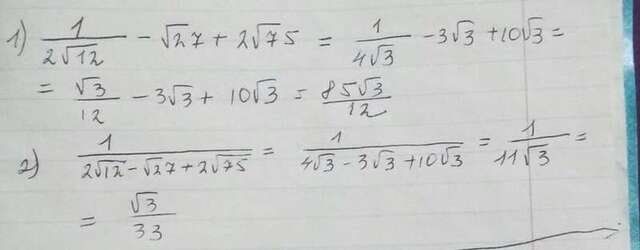 1) 1/(2√12) - √27 + 2√75 = 1/(4√3) - 3√3 + 10√3 =
= √3/12 - 3√3 + 10√3 = 85√3/12
2) 1/(2√12 - √27 + 2√75) = 1/(4√3 - 3√3 + 10√3) = 1/(11√3) =
= √3/33